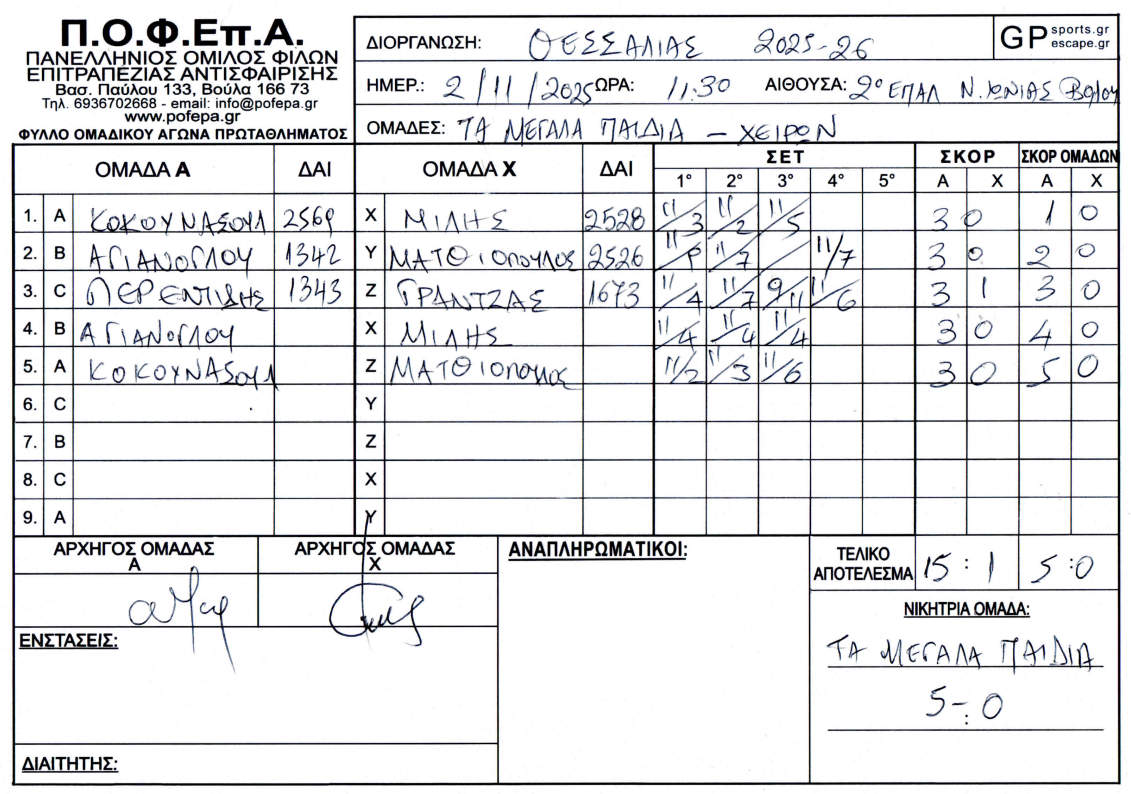 Π.Ο.Φ.Επ.Α.
ΠΑΝΕΛΛΗΝΙΟΣ ΟΜΙΛΟΣ ΦΙΛΩΝ
ΕΠΙΤΡΑΠΕΖΙΑΣ ΑΝΤΙΣΦΑΙΡΙΣΗΣ
Βασ. Παύλου 133, Βούλα 166 73
Τηλ. 6936702668 - email: info@pofepa.gr
www.pofepa.gr
ΦΥΛΛΟ ΟΜΑΔΙΚΟΥ ΑΓΩΝΑ ΠΡΩΤΑΘΛΗΜΑΤΟΣ
ΔΙΟΡΓΑΝΩΣΗ: ΘΕΣΣΑΛΙΑΣ 2025-26
GP sports.gr
escape.gr
ΗΜΕΡ.: 2/11/2025 ΩΡΑ: 11:30 ΑΙΘΟΥΣΑ: 2º ΕΠΑΛ Ν. ΙΩΝΙΑΣ Βόλου
ΟΜΑΔΕΣ: ΤΑ ΜΕΓΑΛΑ ΠΑΙΔΙΑ – ΧΕΙΡΩΝ
ΟΜΑΔΑ Α ΔΑΙ ΟΜΑΔΑ Χ ΔΑΙ ΣΕΤ ΣΚΟΡ ΣΚΟΡ ΟΜΑΔΩΝ
1° 2° 3° 4° 5° Α Χ Α Χ
1. A ΚΟΚΟΥΝΑΣΟΥΛ 2569 X ΜΙΛΗΣ 2528 11/3 11/2 11/5 3 0 1 0
2. B ΑΓΙΑΝΟΓΛΟΥ 1342 Y ΜΑΤΘΙΟΠΟΥΛΟΣ 2526 11/ 11/7 11/7 3 0 2 0
3. C ΠΕΡΕΝΤΙΔΗΣ 1343 Z ΓΡΑΝΤΖΑΣ 1673 11/4 11/7 9/11 11/6 3 1 3 0
4. B ΑΓΙΑΝΟΓΛΟΥ X ΜΙΛΗΣ 11/4 11/4 11/4 3 0 4 0
5. A ΚΟΚΟΥΝΑΣΟΥΛ Z ΜΑΤΘΙΟΠΟΥΛΟΣ 11/2 11/3 11/6 3 0 5 0
6. C Y
7. B Z
8. C X
9. A Y
ΑΡΧΗΓΟΣ ΟΜΑΔΑΣ Α ΑΡΧΗΓΟΣ ΟΜΑΔΑΣ Χ ΑΝΑΠΛΗΡΩΜΑΤΙΚΟΙ: ΤΕΛΙΚΟ ΑΠΟΤΕΛΕΣΜΑ 15 : 1 5 : 0
ΝΙΚΗΤΡΙΑ ΟΜΑΔΑ:
ΕΝΣΤΑΣΕΙΣ:
ΤΑ ΜΕΓΑΛΑ ΠΑΙΔΙΑ
5-:0
ΔΙΑΙΤΗΤΗΣ: